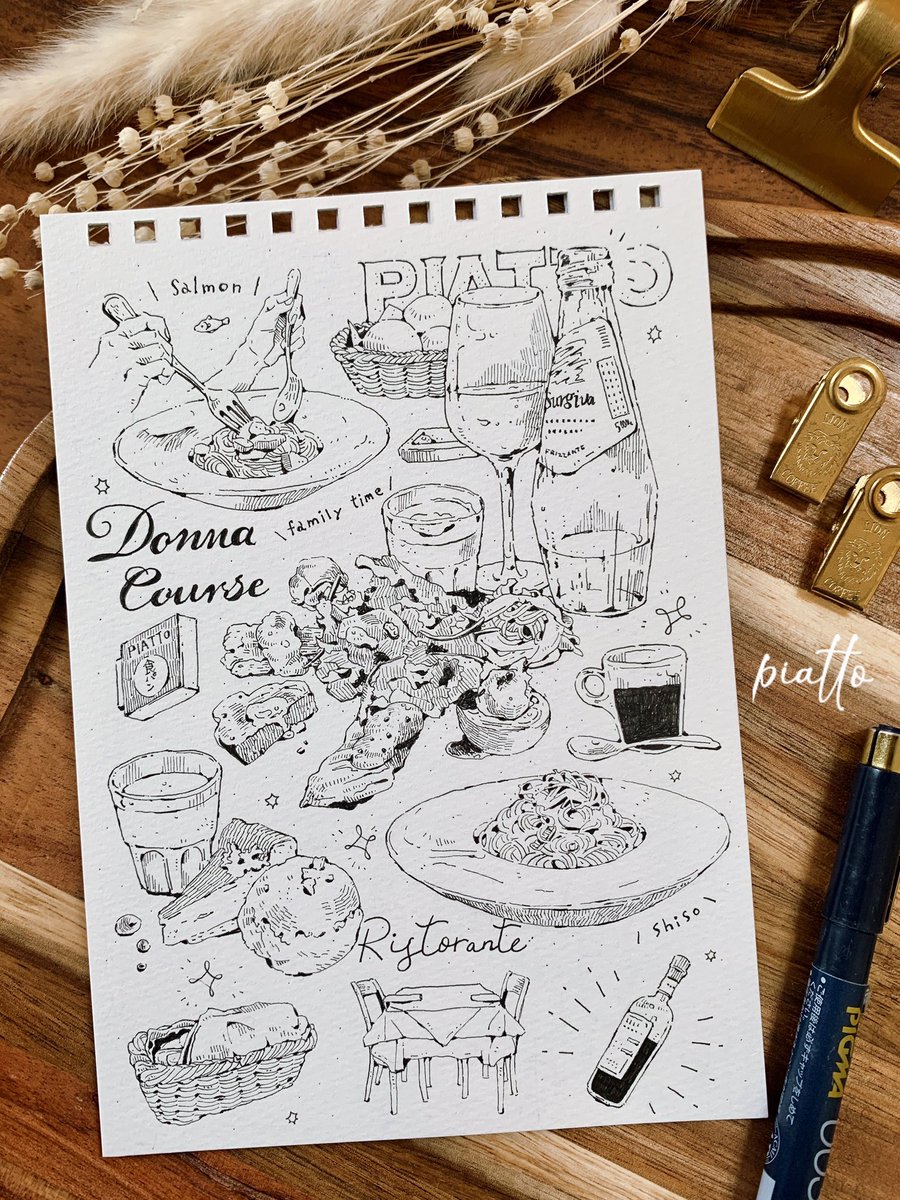 \ Salmon /
PIATTO
Surgiva
FRIZZANTE
\ family time /
Donna
Course
PIATTO
食パン
piatto
Ristorante
/ Shiso \
LION
COFFEE
LION
COFFEE
PIGMA